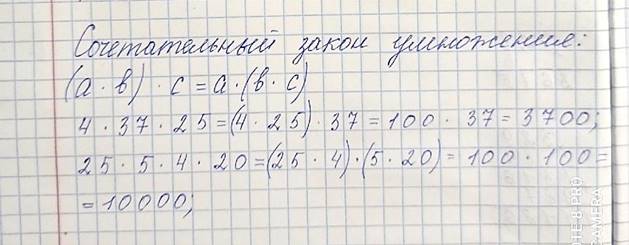 Сочетательный закон умножения:
(а · в) · с = а · (в · с)
4 · 37 · 25 = (4 · 25) · 37 = 100 · 37 = 3700;
25 · 5 · 4 · 20 = (25 · 4) · (5 · 20) = 100 · 100 =
= 10000;
CAMERA